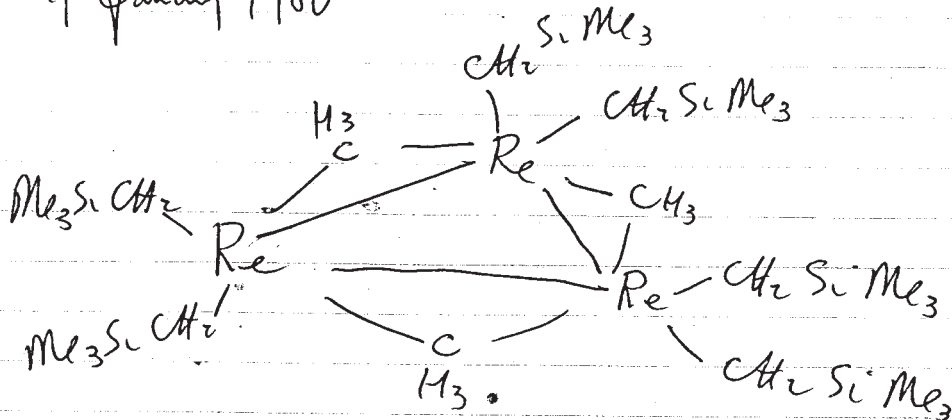 January 1980
SiMe3
CH2
CH2SiMe3
H3
C
Re
CH3
Me3SiCH2
Re
Re
CH2SiMe3
Me3SiCH2
C
H3.
CH2SiMe3